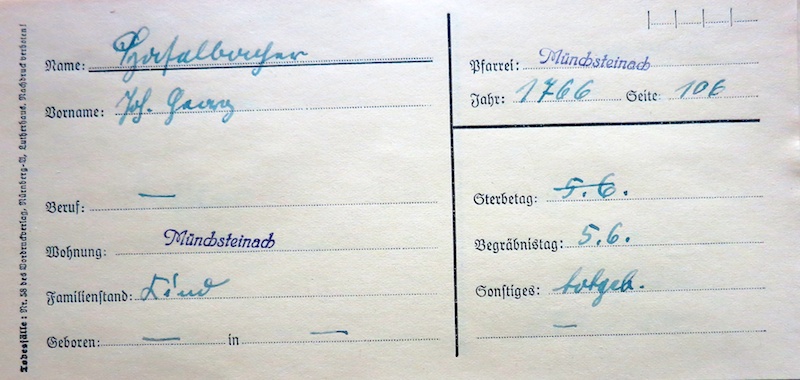 Todesfälle: Nr. 58 des Vordruckverlag, Nürnberg-A, Lutherhaus. Nachdruck verboten!
Name:
Vorname: Joh. Georg
Beruf: —
Wohnung: Münchsteinach
Familienstand: Kind
Geboren: — in —
Pfarrei: Münchsteinach
Jahr: 1766 Seite: 106
Sterbetag: 5.6.
Begräbnistag: 5.6.
Sonstiges: totgeb.
—